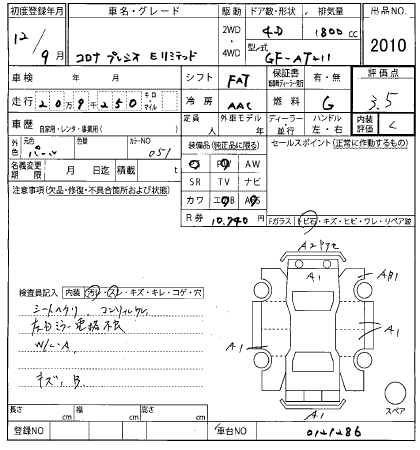 初度登録年月 車名・グレード 駆動 ドア数・形状 排気量 出品NO.
12/9月 コロナ プレミオ Eリミテッド 2WD 4WD 4D 1800cc 2010
型式 GF-AT211
車検 年 月 シフト FAT 保証書 有・無 評価点
走行 20万9千250 キロ・マイル 冷房 AAC 燃料 G 3.5
車歴 自家用・レンタ・事業用( ) 定員 人 外車モデル 年 ディーラー・並行 ハンドル 左・右 内装評価 C
外色 元色 パール 色替 カラーNO 051 装備品(純正品に限る) セールスポイント(正常に作動するもの)
名義変更期限 月 日迄 積載 t
PW AW
SR TV ナビ
カワ
R券 10,940円
注意事項(欠品・修復・不具合箇所および状態)
Fガラス トビ石・キズ・ヒビ・ワレ・リペア跡
A1
A1
A1
A1
検査員記入 内装 汚レ・スレ・キズ・キレ・コゲ・穴
左右ミラー電格不良
W/L-A
キズ、B
スペア
長さ cm 幅 cm 高さ cm
登録NO 車台NO 0121286